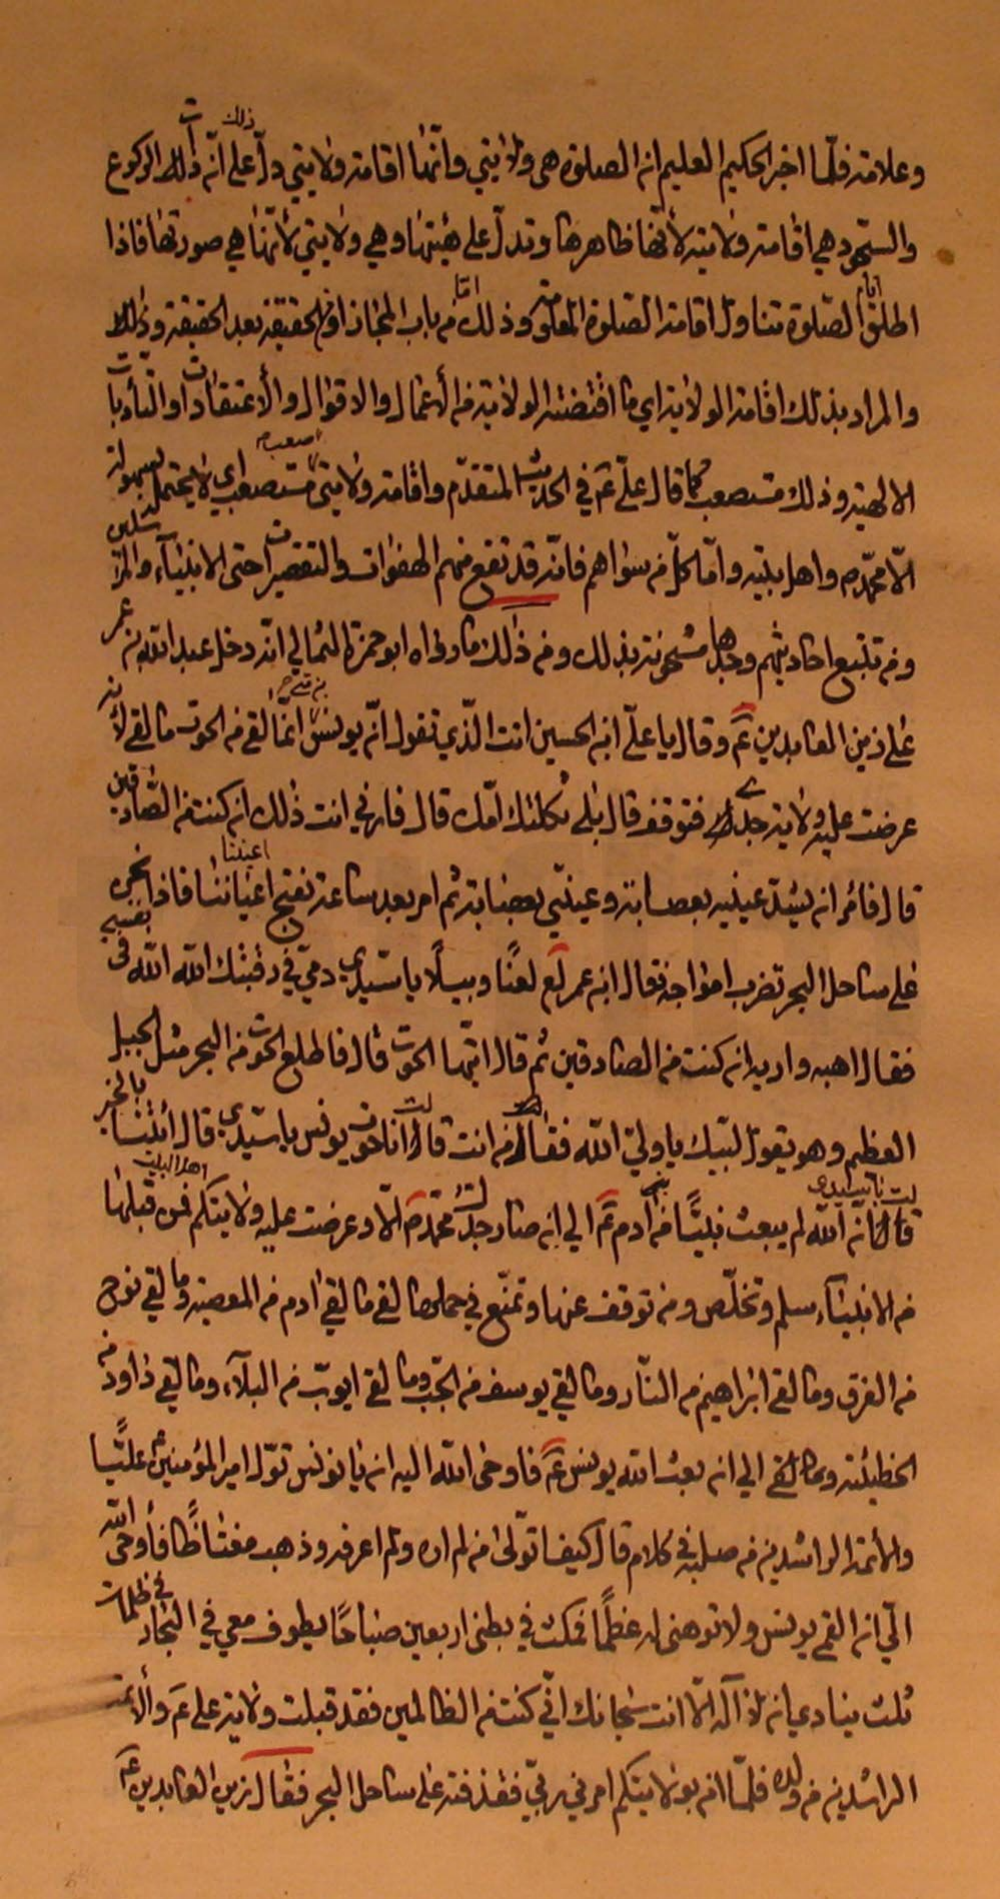 وعلامته فلمّا اخبر الحكيم العليم ان الصلوة هي ولايتي وانّها اقامة ولايتي دلّ ذلك على انّ ذات الركوع
والسّجود هي اقامة ولايته لأنّها ظاهرها وتدلّ على هيئتها وهي ولايتي لأنّها هي صورتها فاذا
اطلق الصّلوة تناول اقامة الصّلوة المعلومة وذلك امّا من باب المجاز او الحقيقة بعد الحقيقة وذلك
والمراد بذلك اقامة الولاية اي ما اقتضته الولاية من الأعمال والاقوال والأعتقادات والتأديبات
الالهية وذلك مستصعب كما قال علي عَم في الحديث المتقدّم واقامة ولايتي صعب مستصعب اي لا يحتمل بسهولة
الّا محمّد ص واهل بيته وامّا كلّ من سواهم فانّه قد تقع منهم الهفوات والتقصيرات حتى الانبيآء والمرسلين
ومن تتبع احاديثهم وجدها مشحونة بذلك ومن ذلك ما رواه ابو حمزة الثمالي انّه دخل عبد الله بن عمر
على زين العابدين عَم وقال يا علي ابن الحسين انت الّذي تقول انّ يونس بن متى انما لقي من الحوت ما لقي لأنه
عرضت عليه ولاية جدي فتوقف قال بلى ثكلتك امّك قال فارني انت ذلك ان كنت من الصّادقين
قال فامر ان يشدّ عينيه بعصابة وعينيّ بعصابة ثم امر بعد ساعة بفتح اعيننا فاذا نحن
على ساحل البحر تضرب امواجه فقال ابن عمر يا سيّدي دمي في رقبتك الله الله في نفسي
فقال هيه واريه ان كنت من الصادقين ثم قال ايتها الحوت قال فاطلع الحوت من البحر مثل الجبل
العظيم وهو يقول لبيك يا وليّ الله فقال من انت قالت انا حوت يونس يا سيّدي قال انبئنا بالخبر
قالت يا سيدي انّ الله لم يبعث نبيًّا من ادم عَم الى ان صار جدك محمّد ص الّا وعرضت عليه ولايتكم اهل البيت فمن قبلها
من الانبيآء سلم وتخلّص ومن توقف عنها وتمنّع في حملها لقي ما لقي ادم من المعصية وما لقي نوح
من الغرق وما لقي ابراهيم من النّار وما لقي يوسف من الجب وما لقي ايوب من البلآء وما لقي داود من
الخطيئة وما لقي الى ان بعث الله يونس عَم فاوحى الله اليه ان يا يونس تولّ امير المؤمنين ع عليًّا
والأئمة الراشدين من صلبه في كلام قال كيف اتولّى من لم اره ولم اعرفه وذهب مغتاظًا فأوحى الله
اليّ ان القمي يونس ولا توهني له عظمًا فمكث في بطني اربعين صباحًا يطوف معي في البحار في ظلمات
ثلث ينادي انه لا اله الّا انت سبحانك انّي كنت من الظالمين فقد قبلت ولاية علي عَم والأئمة
الراشدين من ولده فلمّا امن بولايتكم امرني ربّي فقذفته على ساحل البحر فقال زين العابدين عَم